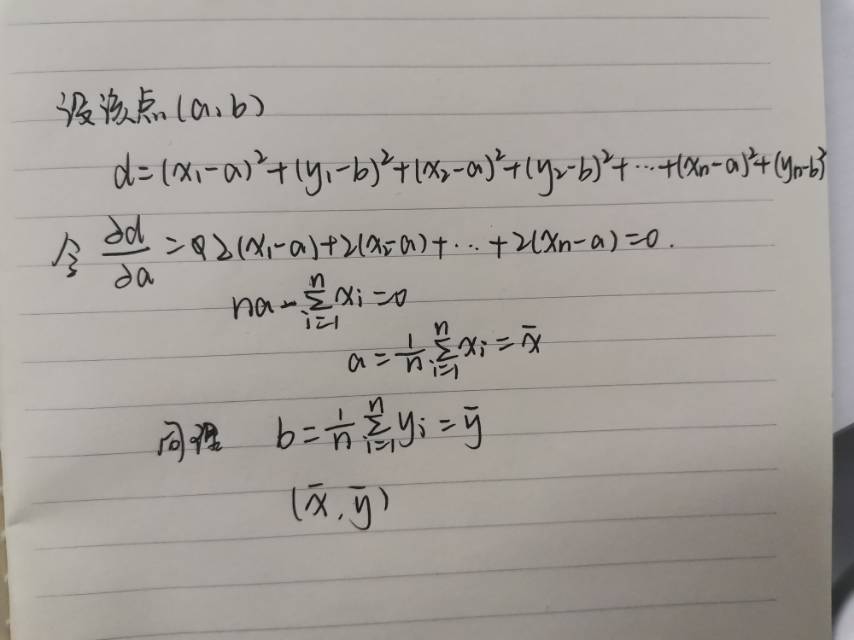 设该点(a,b)
d=(x₁-a)²+(y₁-b)²+(x₂-a)²+(y₂-b)²+⋯+(xn-a)²+(yn-b)²
令 ∂d/∂a = 2(x₁-a)+2(x₂-a)+⋯+2(xn-a)=0.
na-∑ᵢ₌₁ⁿxᵢ=0
a=1/n ∑ᵢ₌₁ⁿxᵢ=x̄
同理 b=1/n ∑ᵢ₌₁ⁿyᵢ=ȳ
(x̄,ȳ)